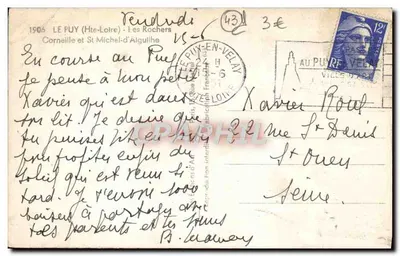 Vendredi
15-6
43
3€
1906 LE PUY (Hte-Loire) - Les Rochers
Corneille et St Michel-d'Aiguilhe
En course au Puy
je pense à mon petit
Xavier qui est dans
son lit. Je desire que
tu puisses vite en
profiter enfin du
soleil qui est venu si
tard. Je t'envoie 1000
baisers à partager avec
tes parents et les
B.
PUY-EN-VELAY
HTE LOIRE
AU PUY EN VELAY
12F
Xavier
32 rue St Denis
St Ouen
Seine
CPHARTIR